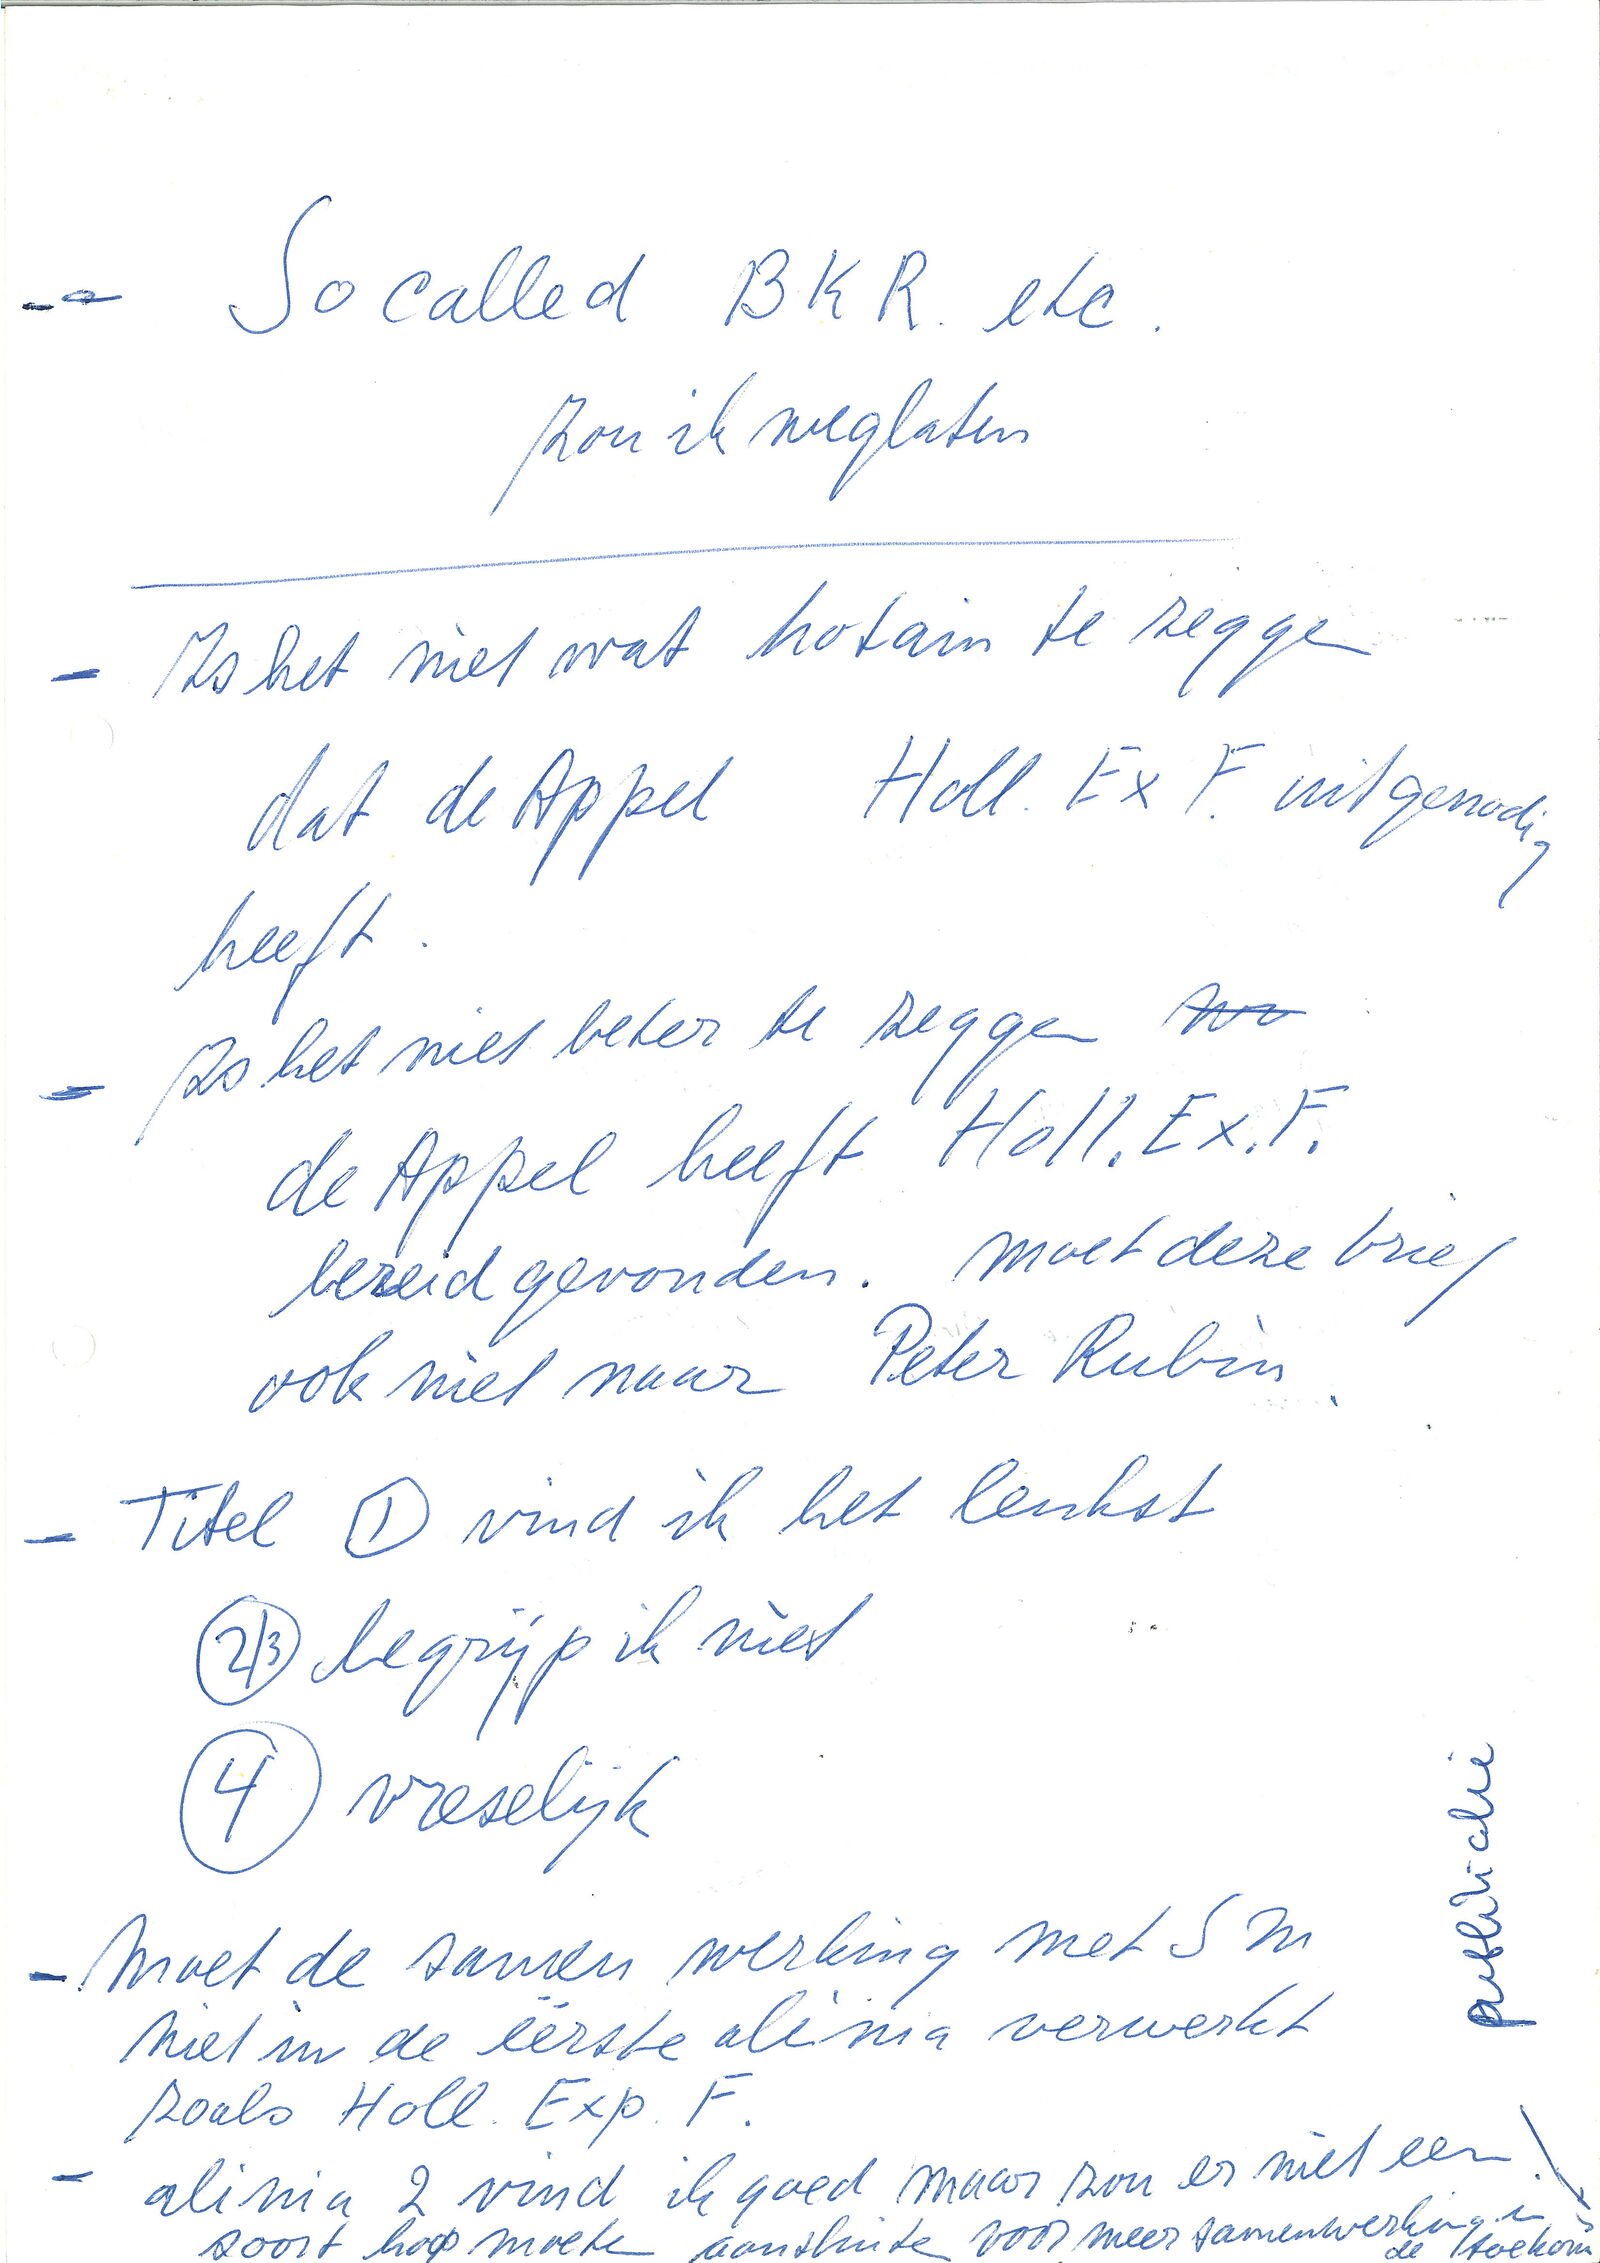 - So called BKR. etc.
zou ik weglaten
- Is het niet wat hotain te zegge
dat de Appel Holl. Ex F. uitgenodig
heeft.
- Is het niet beter te zeggen
de Appel heeft Holl. Ex. F.
bereid gevonden. moet deze brief
ook niet naar Peter Rubin.
- Titel ① vind ik het leukst
2/3 begrijp ik niet
④ vreselijk
- Moet de samen werking met SM
niet in de eërste alinia verwerkt
zoals Holl. Exp. F.
- alinia 2 vind ik goed maar zou er niet een
soort hoop moete aansluite voor meer samenwerking in
de toekom
publicatie